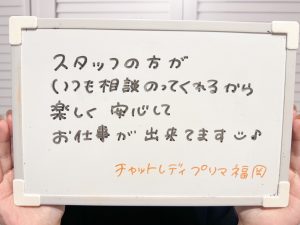 スタッフの方が
いつも相談のってくれるから
楽しく 安心して
お仕事が 出来てます☺♪
チャットレディ プリマ 福岡